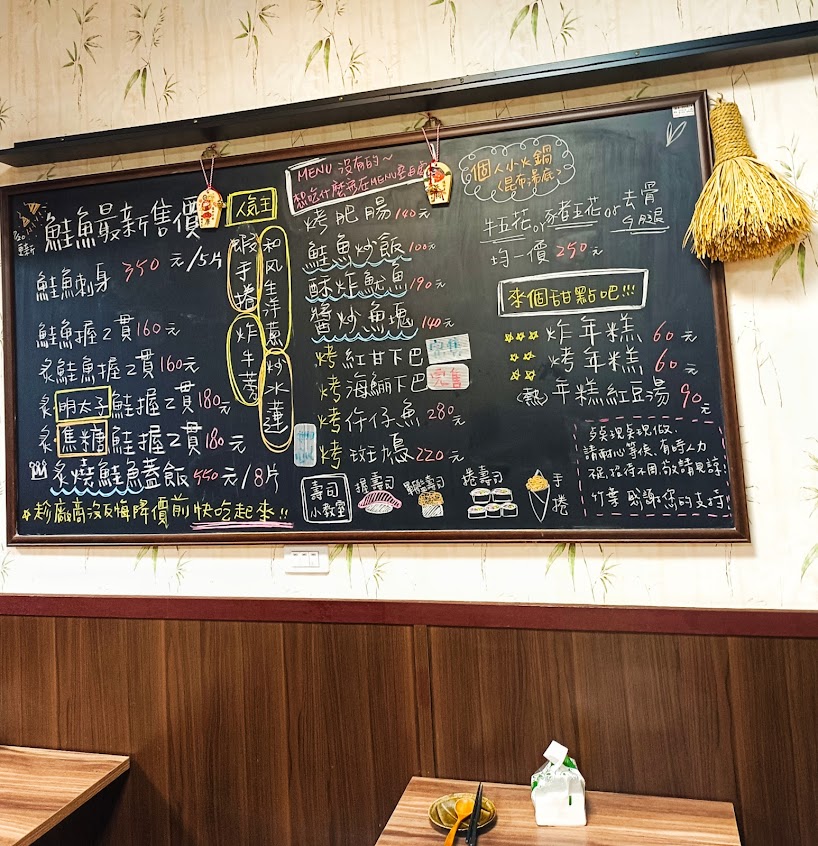 更新
鮭魚最新售價
鮭魚刺身 350元/5片
鮭魚握2貫160元
炙鮭魚握2貫160元
炙明太子鮭握2貫180元
炙焦糖鮭握2貫180元
炙燒鮭魚蓋飯 550元/8片
趁廠商沒反悔降價前快吃起來!!
人氣王
蝦手捲
和风生洋蔥
炸牛蒡
炒水蓮
MENU 沒有的~
烤肥腸 140元
鮭魚炒飯 100元
酥炸魷魚 190元
醬炒魚塊 140元
烤紅甘下巴 完售
烤海鱺下巴 完售
烤仔仔魚 280元
烤斑 220元
壽司
小教室
握壽司
軍艦壽司
捲壽司
手捲
個人小火鍋
(昆布湯底)
牛五花or豬五花or去骨
均一價 250元
來個甜點吧!!!
炸年糕 60元
烤年糕 60元
(熱)年糕紅豆湯 90元
現現做,
請耐心等候、有時人力
不足,招待不周,敬請見諒!
竹葉 感謝您的支持!!